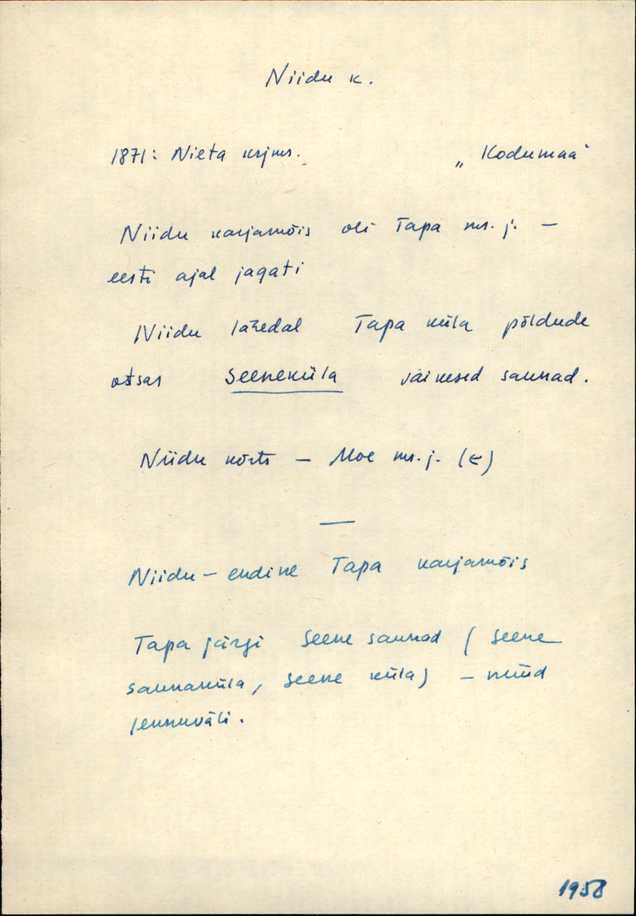 Niidu k.
1871: Nieta krjms. „Kodumaa"
Niidu karjamõis oli Tapa ms. j. –
eesti ajal jagati
Niidu lähedal Tapa küla põldude
otsas Seeneküla väikesed saunad.
Niidu kõrts – Moe ms. j. (←)
—
Niidu – endine Tapa karjamõis
Tapa järgi Seene saunad (Seene
saunaküla, Seene küla) – nüüd
lennuväli.
1958